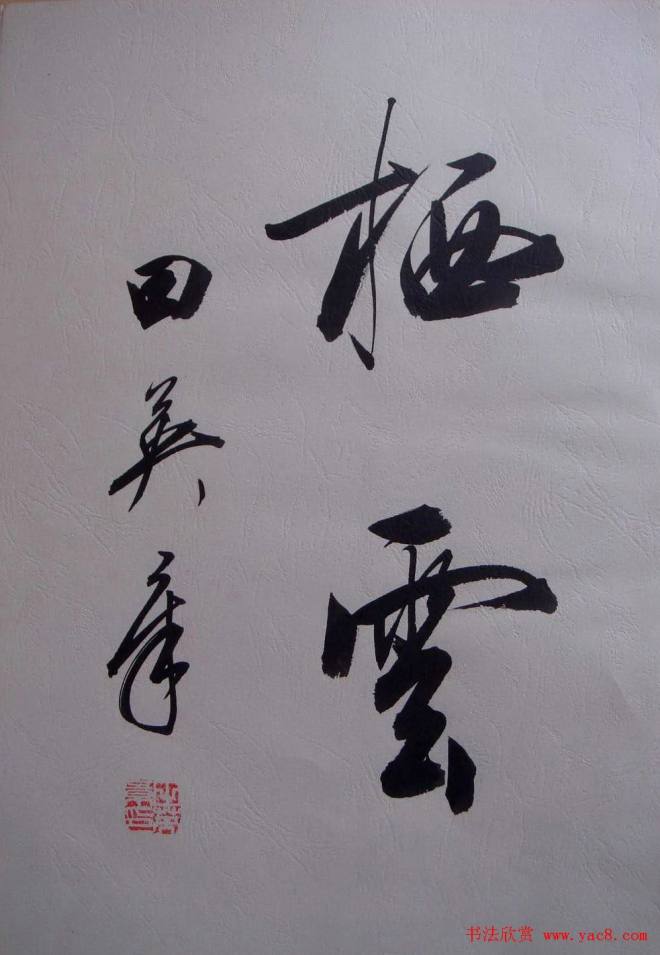 栖雲
田英章
书法欣赏 www.yac8.com